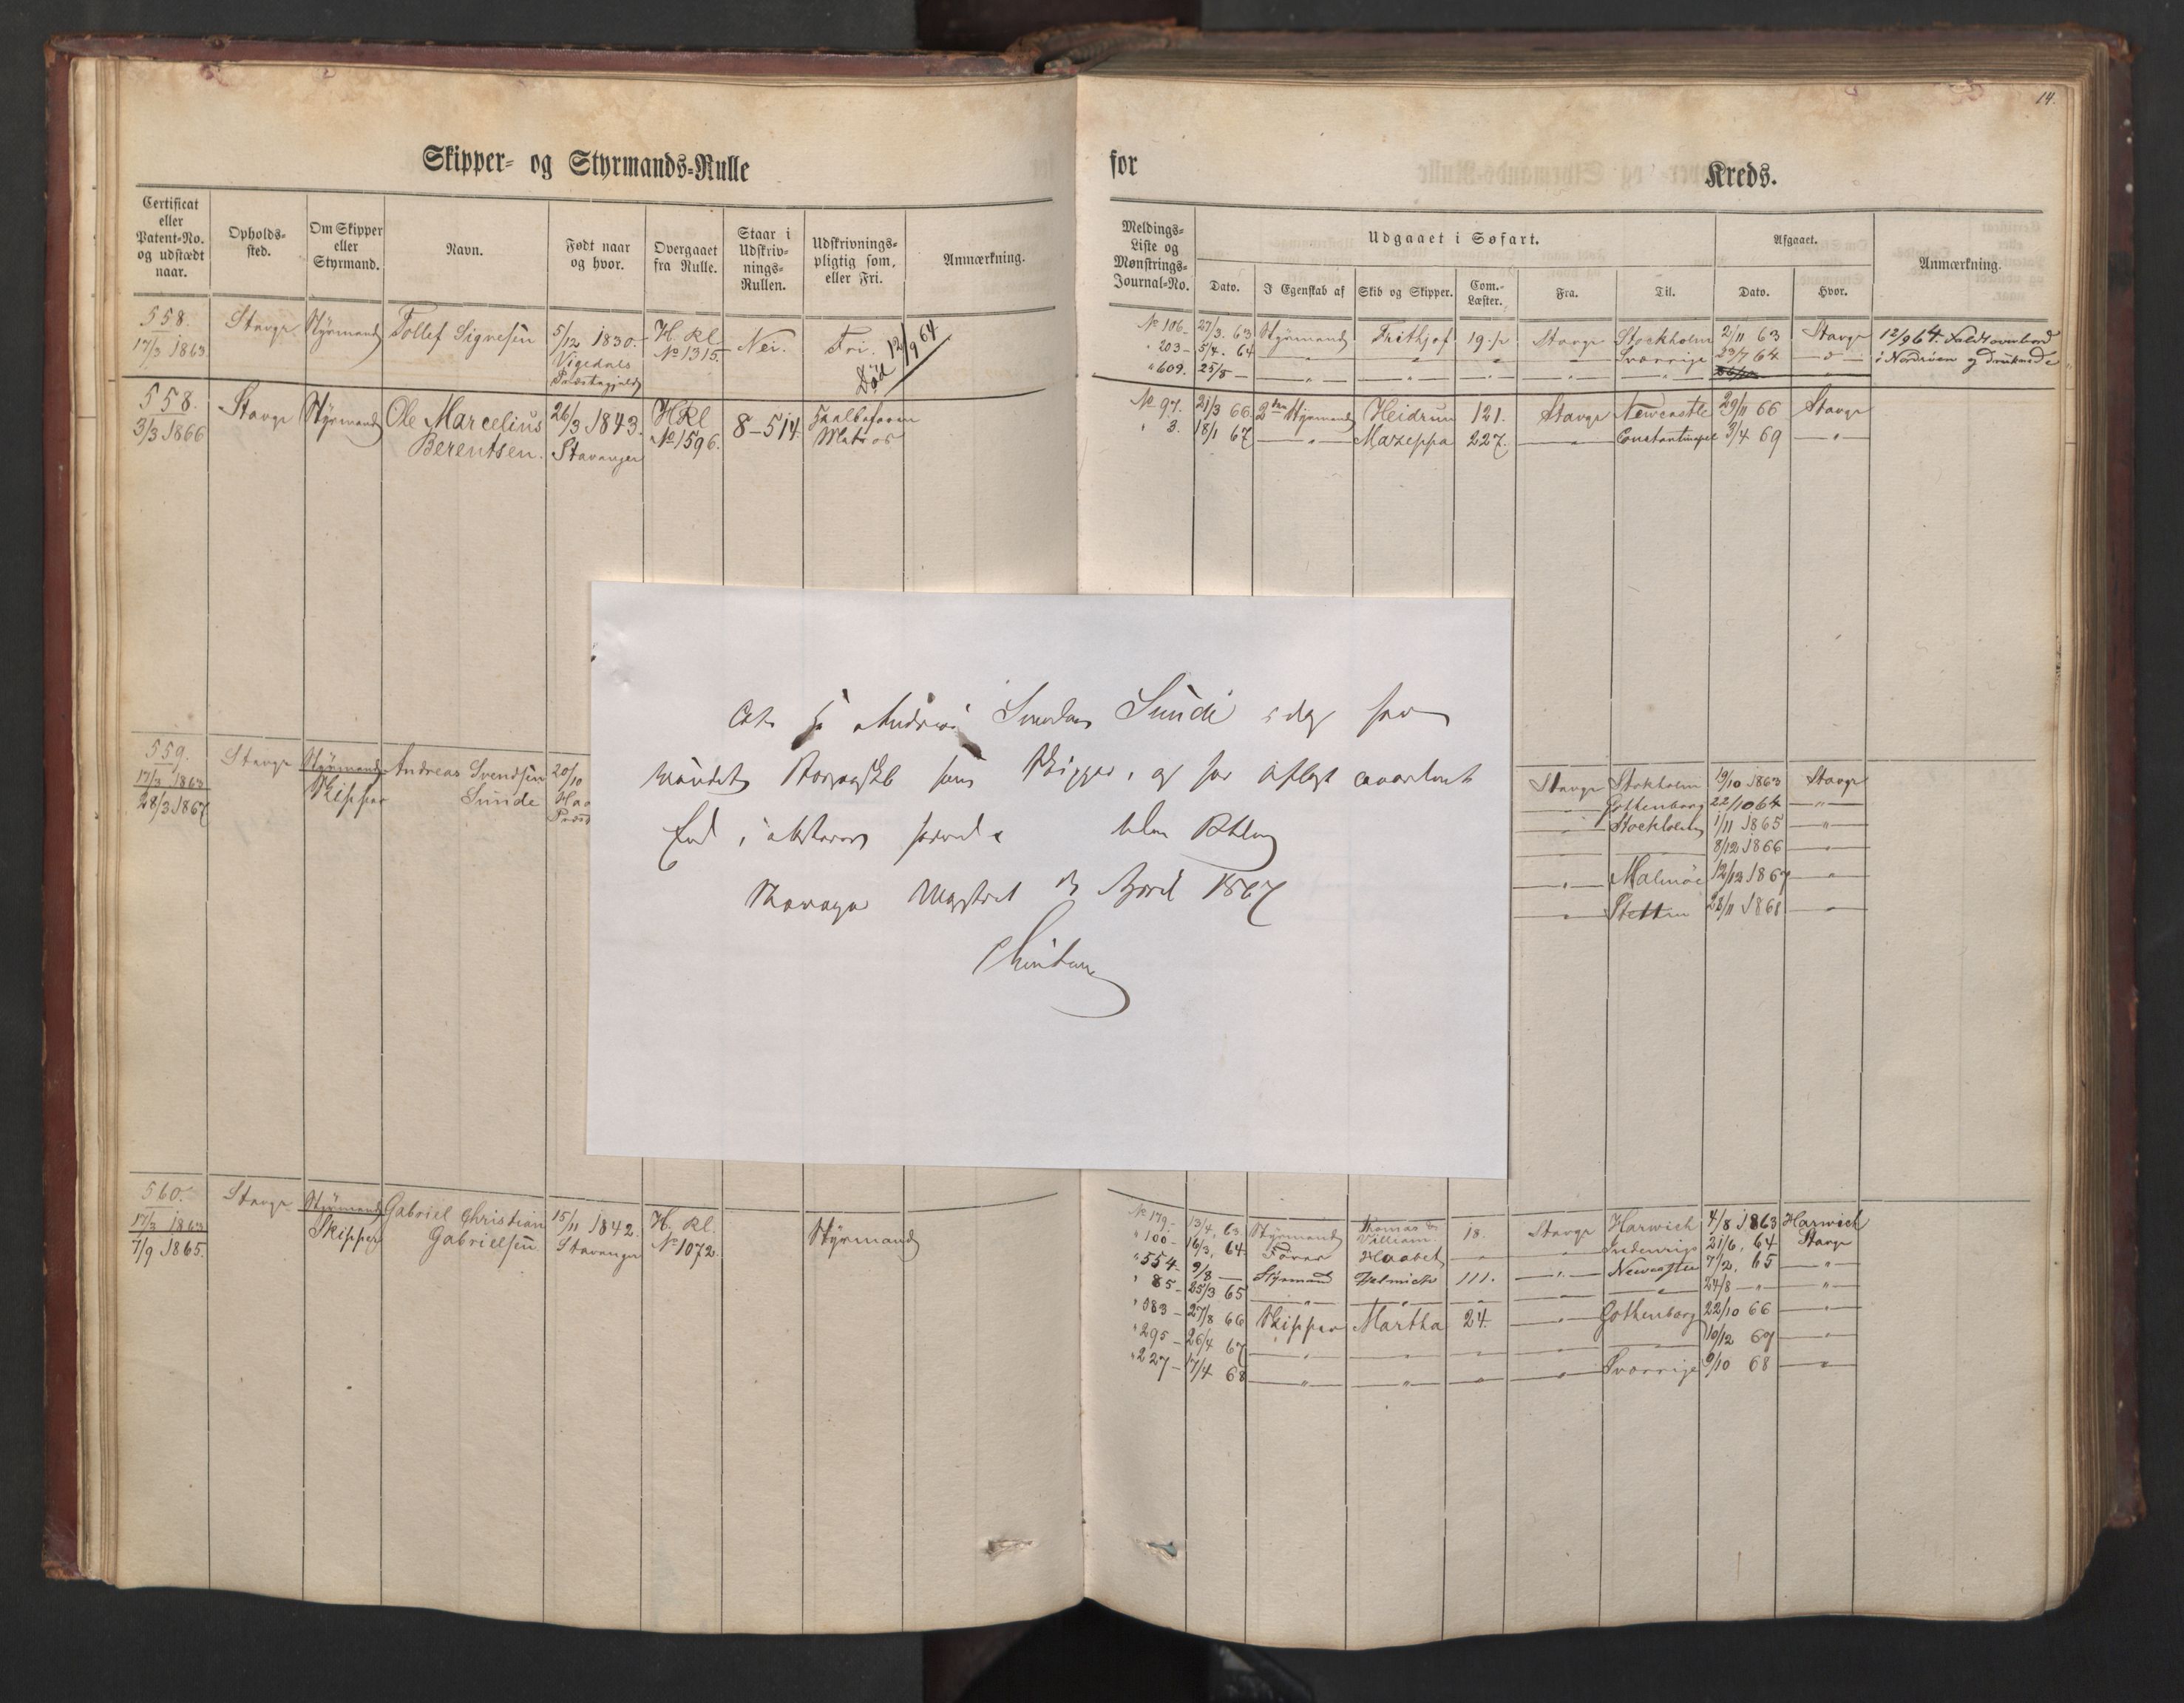 14.
Skipper- og Styrmands-Rulle
for Kreds.
Certificat eller Patent-No. og udstædt naar.
Opholds-sted.
Om Skipper eller Styrmand.
Navn.
Født naar og hvor.
Overgaaet fra Rulle.
Staar i Udskriv-nings-Rullen.
Udskrivnings-pligtig som, eller Fri.
Anmærkning.
Meldings-Liste og Mønstrings-Journal-No.
Udgaaet i Søfart.
Dato. I Egenskab af Skib og Skipper. Com.-Læster. Fra. Til.
Afgaaet.
Dato. Hvor.
Anmærkning.
558. Stavgr Styrmand Tollef Signesen 5/12 1830. H. Rl. Nei. Fri. Død 12/9 64
17/3 1863. Vigedals No 1315.
Præstegjeld
No 106- 27/3. 63 Styrmand Frithjof 19 1/2 Stavgr Stockholm 2/11 63 Stavgr 12/9 64. Faldt overbord
" 203- 5/4. 64 " " " " Sverrige 23/7 64 " i Nordsøen og druknede
" 609. 25/8 - " " " " "
558. Stavgr Styrmand Ole Marcelius 26/3 1843. H Rl 8-514 Halvbefaren
3/3 1866 Berentsen. Stavanger No 1596. Matros
No 97. 21/3 66 2den Styrmand Heidrun 121. Stavgr Newcastle 29/11 66 Stavgr
" 3. 18/1 67 " Mazeppa 227. " Constantinopel 3/4 69 "
559. Stavgr Styrmand Andreas Svendsen 20/10
17/3 1863 Skipper Sunde
28/3 1867
Stavgr Stokholm 19/10 1863 Stavgr
Gothenborg 22/10 64 "
" Stockholm 1/11 1865 "
8/12 1866 "
" Malmøe 12/12 1867 "
" Stettin 28/11 1868 "
At Andreas Svendsen Sunde idag har
vundet Borgerskab som Skipper, og har aflagt
Eed
Stavanger Magistrat April 1867
560. Stavgr Styrmand Gabriel Christian 15/11 1842. H. Rl. Styrmand
17/3 1863 Skipper Gabrielsen Stavanger No 1072.
7/9 1865.
No 179.- 13/4. 63 Styrmand Thomas & William 18. Stavgr Harwich 4/8 1863 Harwich
" 100- 16/3. 64 Haabet " " 21/6. 64 Stavgr
" 554- 9/8 - Styrmand Helmich 111. " Newcastle 7/2. 65 "
" 85- 25/3 65 " " " " " 24/8 - " "
" 183- 27/8 66 Skipper Martha 24. " Gothenborg 22/10 66 "
" 295- 26/4 67 " " " " 10/12 67 "
" 227- 17/4 68 " " " " Sverrige 9/10 68 "